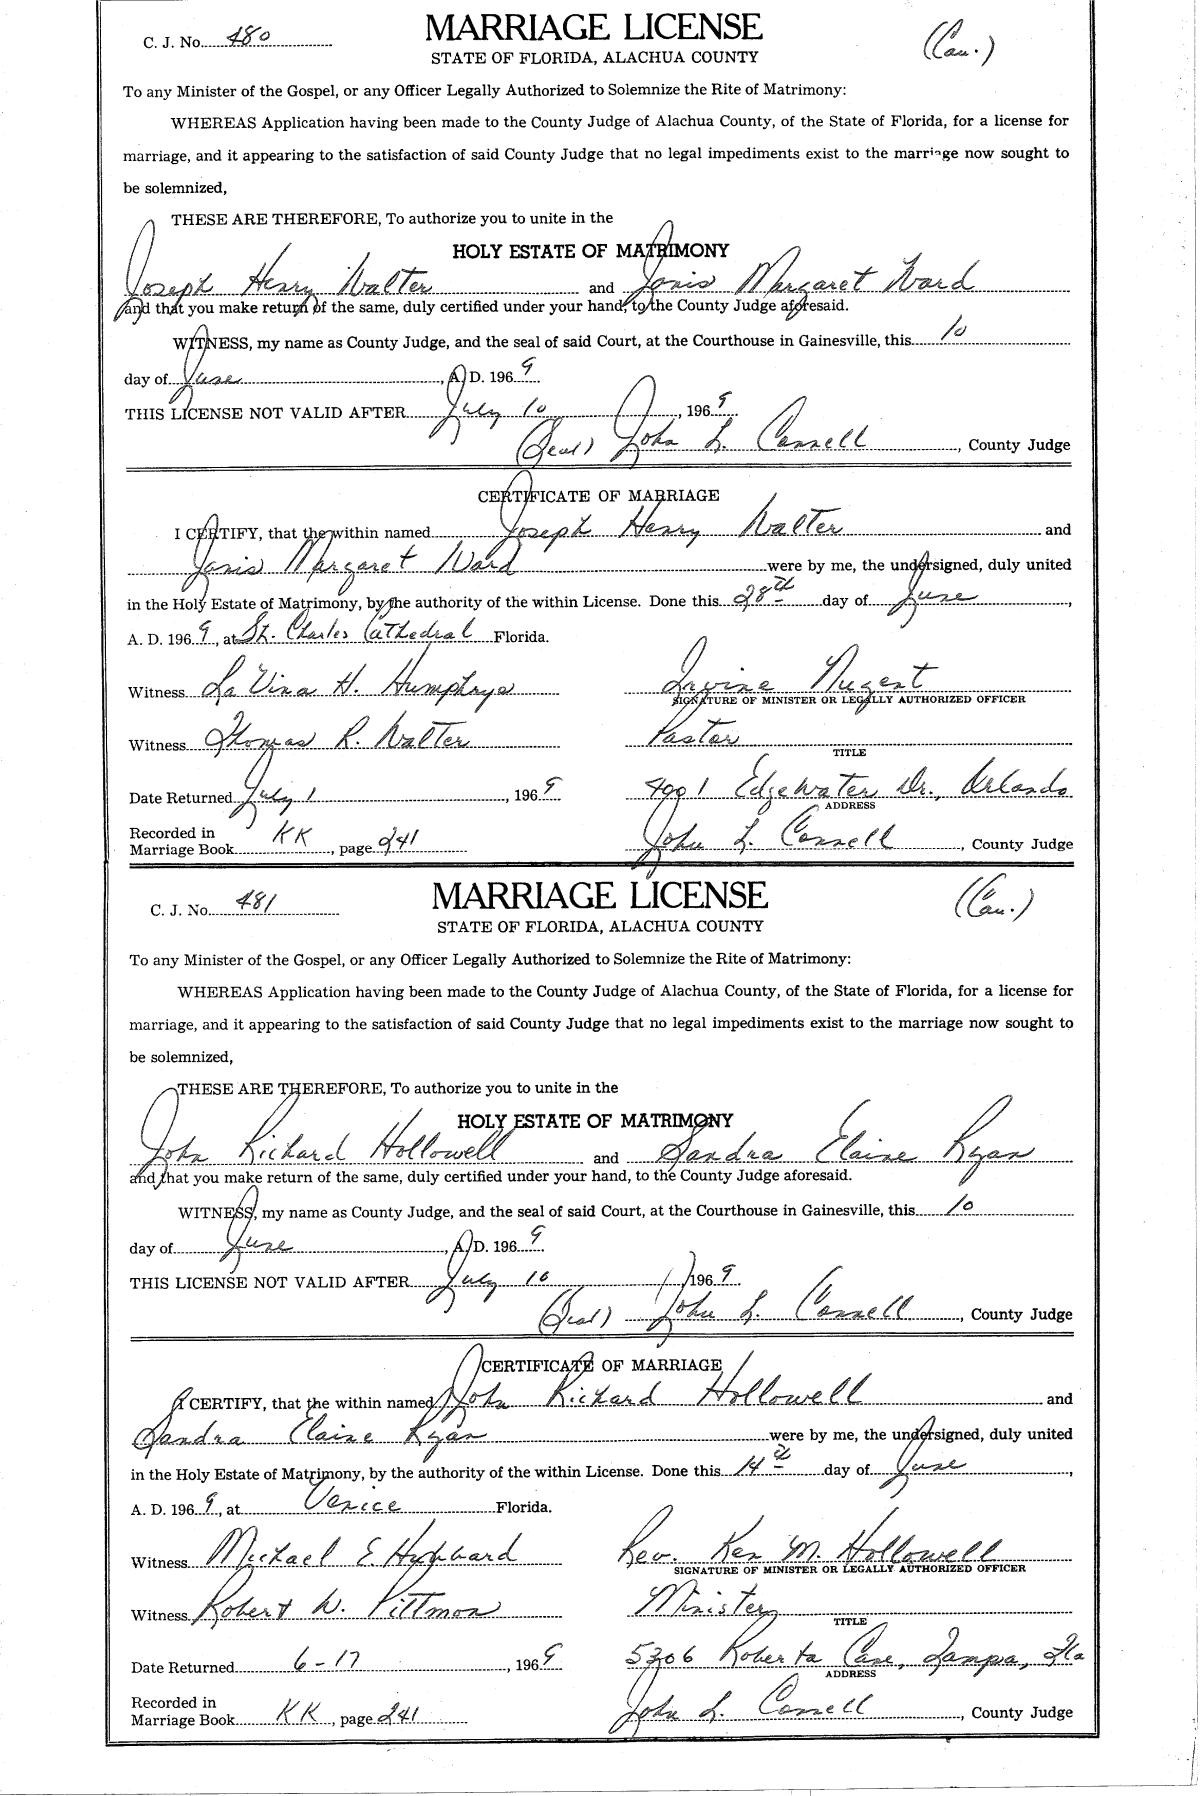 C. J. No. 480
MARRIAGE LICENSE
(Cau.)
STATE OF FLORIDA, ALACHUA COUNTY
To any Minister of the Gospel, or any Officer Legally Authorized to Solemnize the Rite of Matrimony:
WHEREAS Application having been made to the County Judge of Alachua County, of the State of Florida, for a license for
marriage, and it appearing to the satisfaction of said County Judge that no legal impediments exist to the marriage now sought to
be solemnized,
THESE ARE THEREFORE, To authorize you to unite in the
HOLY ESTATE OF MATRIMONY
Joseph Henry Walter and Janis Margaret Ward
and that you make return of the same, duly certified under your hand, to the County Judge aforesaid.
WITNESS, my name as County Judge, and the seal of said Court, at the Courthouse in Gainesville, this 10
day of June, A. D. 1969
THIS LICENSE NOT VALID AFTER July 10, 1969
(Seal) John L. Connell, County Judge
CERTIFICATE OF MARRIAGE
I CERTIFY, that the within named Joseph Henry Walter and
Janis Margaret Ward were by me, the undersigned, duly united
in the Holy Estate of Matrimony, by the authority of the within License. Done this 28th day of June,
A. D. 1969, at St. Charles Cathedral Florida.
Witness La Vina H. Humphrys Irvine Nugent
SIGNATURE OF MINISTER OR LEGALLY AUTHORIZED OFFICER
Witness Thomas R. Walter Pastor
TITLE
Date Returned July 1, 1969 4001 Edgewater Dr., Orlando
ADDRESS
Recorded in
Marriage Book KK, page 241 John L. Connell, County Judge
C. J. No. 481
MARRIAGE LICENSE
(Cau.)
STATE OF FLORIDA, ALACHUA COUNTY
To any Minister of the Gospel, or any Officer Legally Authorized to Solemnize the Rite of Matrimony:
WHEREAS Application having been made to the County Judge of Alachua County, of the State of Florida, for a license for
marriage, and it appearing to the satisfaction of said County Judge that no legal impediments exist to the marriage now sought to
be solemnized,
THESE ARE THEREFORE, To authorize you to unite in the
HOLY ESTATE OF MATRIMONY
John Richard Hollowell and Sandra Elaine Ryan
and that you make return of the same, duly certified under your hand, to the County Judge aforesaid.
WITNESS, my name as County Judge, and the seal of said Court, at the Courthouse in Gainesville, this 10
day of June, A. D. 1969
THIS LICENSE NOT VALID AFTER July 10, 1969
(Seal) John L. Connell, County Judge
CERTIFICATE OF MARRIAGE
I CERTIFY, that the within named John Richard Hollowell and
Sandra Elaine Ryan were by me, the undersigned, duly united
in the Holy Estate of Matrimony, by the authority of the within License. Done this 14th day of June,
A. D. 1969, at Venice Florida.
Witness Michael E Hubbard Rev. Ken M. Hollowell
SIGNATURE OF MINISTER OR LEGALLY AUTHORIZED OFFICER
Witness Robert W. Pittmon Minister
TITLE
Date Returned 6-17, 1969 5306 Roberta Cane, Tampa, Fla
ADDRESS
Recorded in
Marriage Book KK, page 241 John L. Connell, County Judge